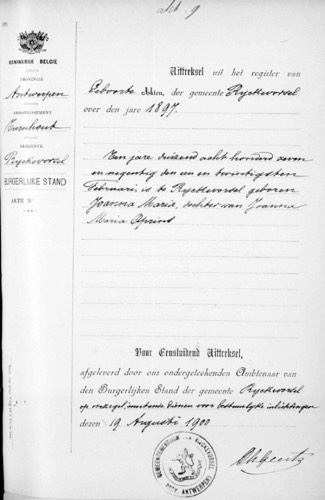 akt. 9
KONINKRIJK BELGIE
PROVINCIE
Antwerpen
ARRONDISSEMENT
Turnhout
GEMEENTE
Ryckevorsel
BURGERLIJKE STAND
AKTE N°
Uittreksel uit het register van
Geboorte Akten, der gemeente Ryckevorsel
over den jare 1897.
Ten jare duizend acht honderd zeven
en negentig den een en twintigsten
Februari is te Ryckevorsel geboren
Joanna Maria, dochter van Joanna
Maria
Voor Eensluidend Uittreksel,
afgeleverd door ons ondergeteekenden Ambtenaar van
den Burgerlijken Stand der gemeente Ryckevorsel
op ongezegel, moetende dienen voor bestuurlijke inlichtingen
dezen 19 Augusti 1900
GEMEENTEBESTUUR VAN RYCKEVORSEL
PROV. ANTWERPEN